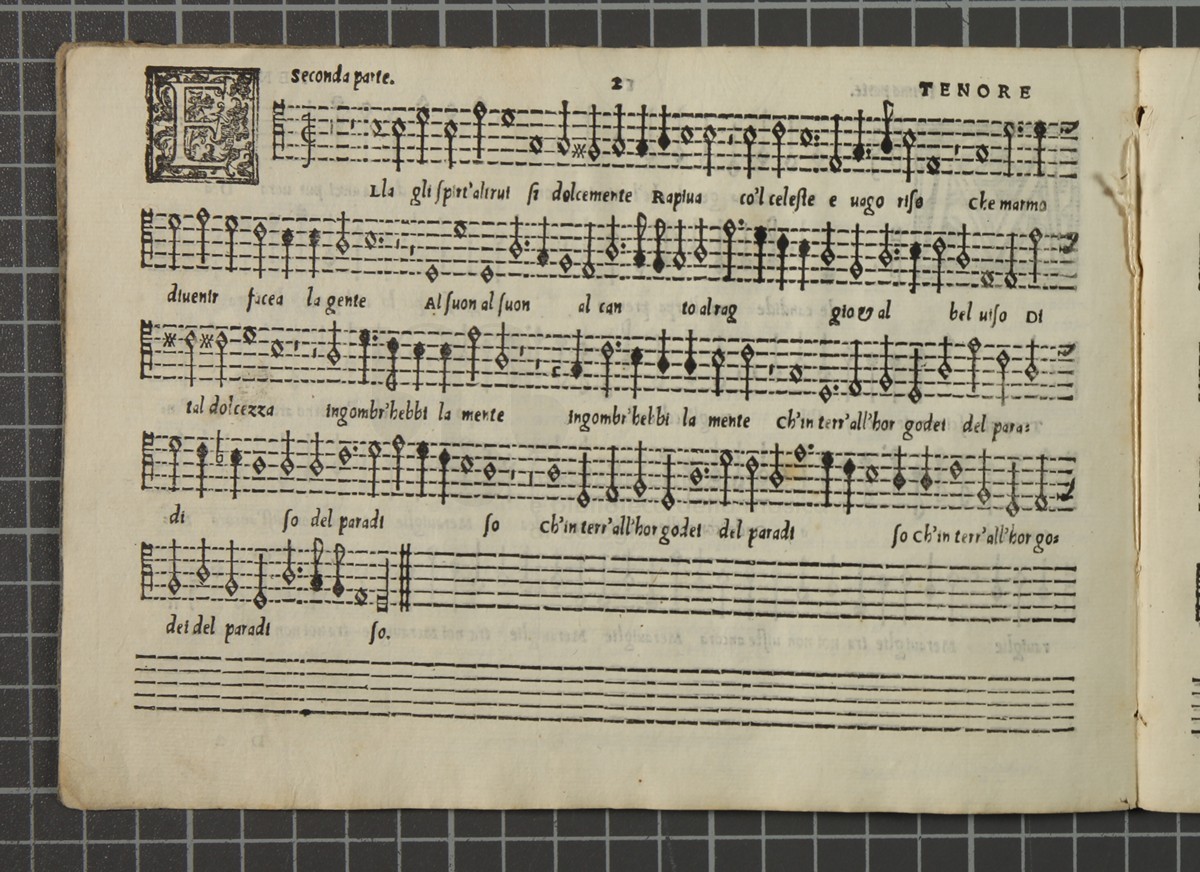 Seconda parte. 2 TENORE
ELla gli spirt'altrui si dolcemente Rapiua co'l celeste e uago riso che marmo
diuenir facea la gente Al suon al suon al can to al rag gio & al bel uiso Di
tal dolcezza ingombr'hebbi la mente ingombr'hebbi la mente ch'in terr'all'hor godei del para:
di so del paradi so ch'in terr'all'hor godei del paradi so ch'in terr'all'hor go:
dei del paradi so.